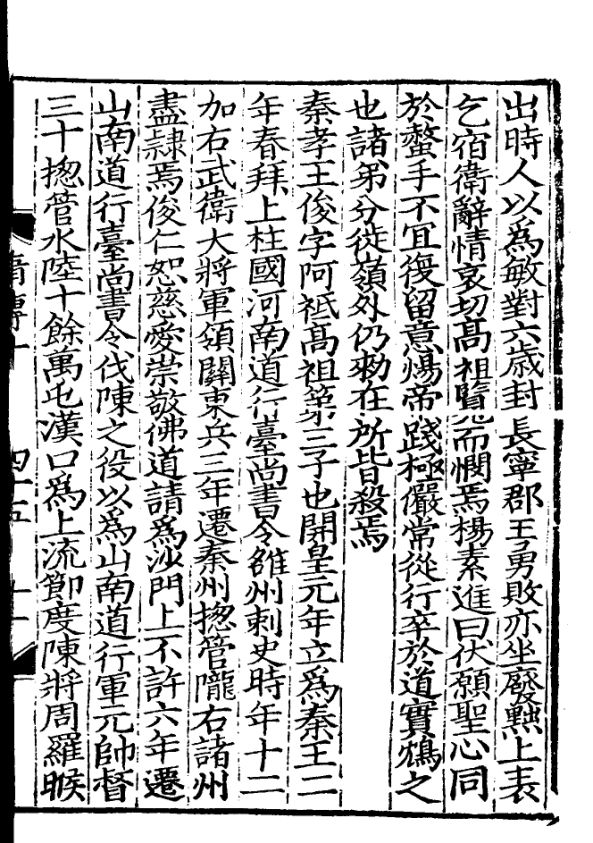 出時人以爲敏對六歲封長寧郡王勇敗亦坐廢黜上表
乞宿衛辭情哀切髙祖覽而憫焉楊素進曰伏願聖心同
於螫手不冝復留意煬帝踐極儼常從行卒於道實鴆之
也諸弟分徙嶺外仍勑在所皆殺焉
秦孝王俊字阿祗髙祖第三子也開皇元年立爲秦王二
年春拜上柱國河南道行臺尚書令雒州刺史時年十二
加右武衛大將軍領關東兵三年遷秦州揔管隴右諸州
盡隷焉俊仁恕慈愛崇敬佛道請爲沙門上不許六年遷
山南道行臺尚書令伐陳之役以爲山南道行軍元帥督
三十揔管水陸十餘萬屯漢口爲上流節度陳將周羅睺
四十五 十一